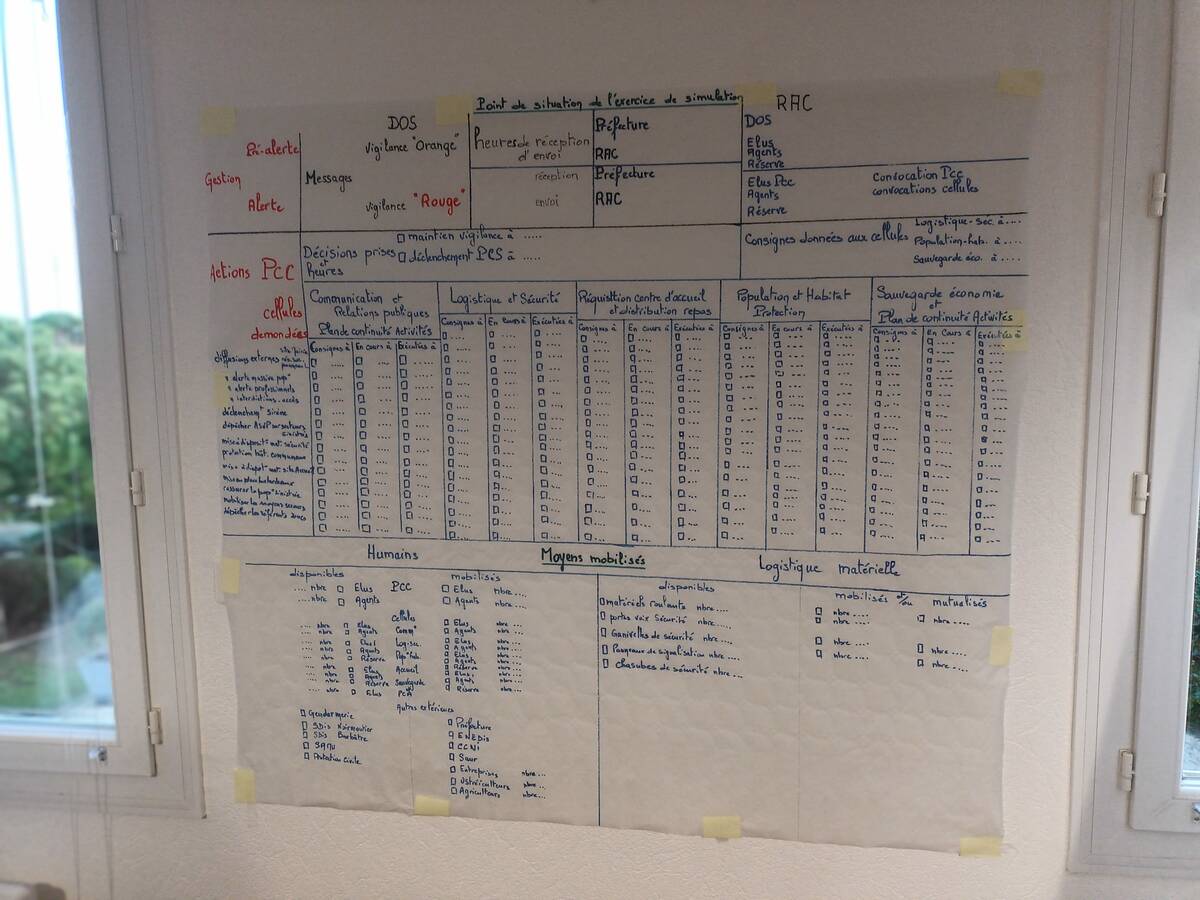 Point de situation de l'exercice de simulation
RAC
DOS
Pré-alerte
vigilance "Orange"
heures de réception
d'envoi
Préfecture
RAC
DOS
Elus
Agents
Réserve
Gestion
Messages
réception
Préfecture
Alerte
vigilance "Rouge"
envoi
RAC
Elus Pcc
Agents
Réserve
Convocation Pcc
convocations cellules
Actions PCC
Décisions prises
et
heures
maintien vigilance à .....
déclenchement PCS à .....
Consignes données aux cellules
Logistique-Sec. à ....
Population-hab. à ....
Sauvegarde éco. à ....
cellules
demandées
Communication et
Relations publiques
Plan de continuité Activités
Logistique et Sécurité
Réquisition centre d'accueil
et distribution repas
Population et Habitat
Protection
Sauvegarde économie
et
Plan de continuité Activités
Consignes à
En cours à
Exécutées à
Consignes à
En cours à
Exécutées à
Consignes à
En cours à
Exécutées à
Consignes à
En cours à
Exécutées à
Consignes à
En Cours à
Exécutées à
diffusions externes
alerte massive pop°
alerte professionnels
interdictions - accès
déclenchemt Sirène
protection bât. communaux
Moyens mobilisés
Humains
disponibles
mobilisés
.... nbre Elus PCC Elus nbre...
.... nbre Agents Agents nbre...
Cellules
.... nbre Elus Elus nbre...
nbre Agents Comm° Agents nbre...
.... nbre Elus Log-sec. Elus nbre...
nbre Agents Agents nbre...
nbre Réserve Elus nbre...
nbre Elus Accueil
nbre Agents
nbre Réserve Sauvegarde
.... nbre Elus PCA Réserve nbre...
Autres extérieures
Gendarmerie
SDis Noirmoutier
SDis Barbâtre
SAMU
Préfecture
ENEDIS
Saur
Entreprises nbre...
Ostréiculteurs nbre...
Agriculteurs nbre...
Logistique matérielle
disponibles
mobilisés et/ou mutualisés
matériels roulants nbre....
portes voix Sécurité nbre....
Ganivelles de sécurité nbre...
Panneaux de signalisation nbre....
Chasubes de sécurité nbre...
nbre....
nbre....
nbre....
nbre....
nbre....
nbre....
nbre....